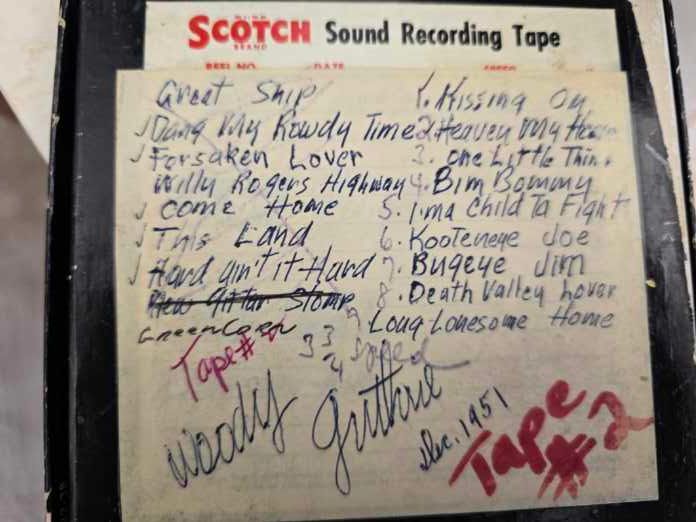 SCOTCH BRAND Sound Recording Tape
REEL NO. DATE SPEED
Great Ship
✓ Dang My Rowdy Time
✓ Forsaken Lover
Willy Rogers Highway
✓ Come Home
✓ This Land
✓ Hard ain't it Hard
New Gitar Stomp
GreenCorn
1. Kissing On
2. Heaven My Heaven
3. One Little Thing
4. Bim Bommy
5. I'ma Child Ta Fight
6. Kooteneye Joe
7. Bugeye Jim
8. Death Valley Lover
9 Long Lonesome Home
Tape #2
3 3/4 Speed
Woody Guthrie
Dec. 1951
Tape #2